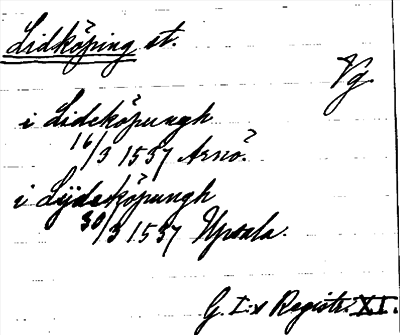 Lidköping st.
Vg
i Lideköpungh
16/3 1537 Arnö.
i Lydeköpungh
30/3 1537 Upsala.
G. I:s Registr. XI.